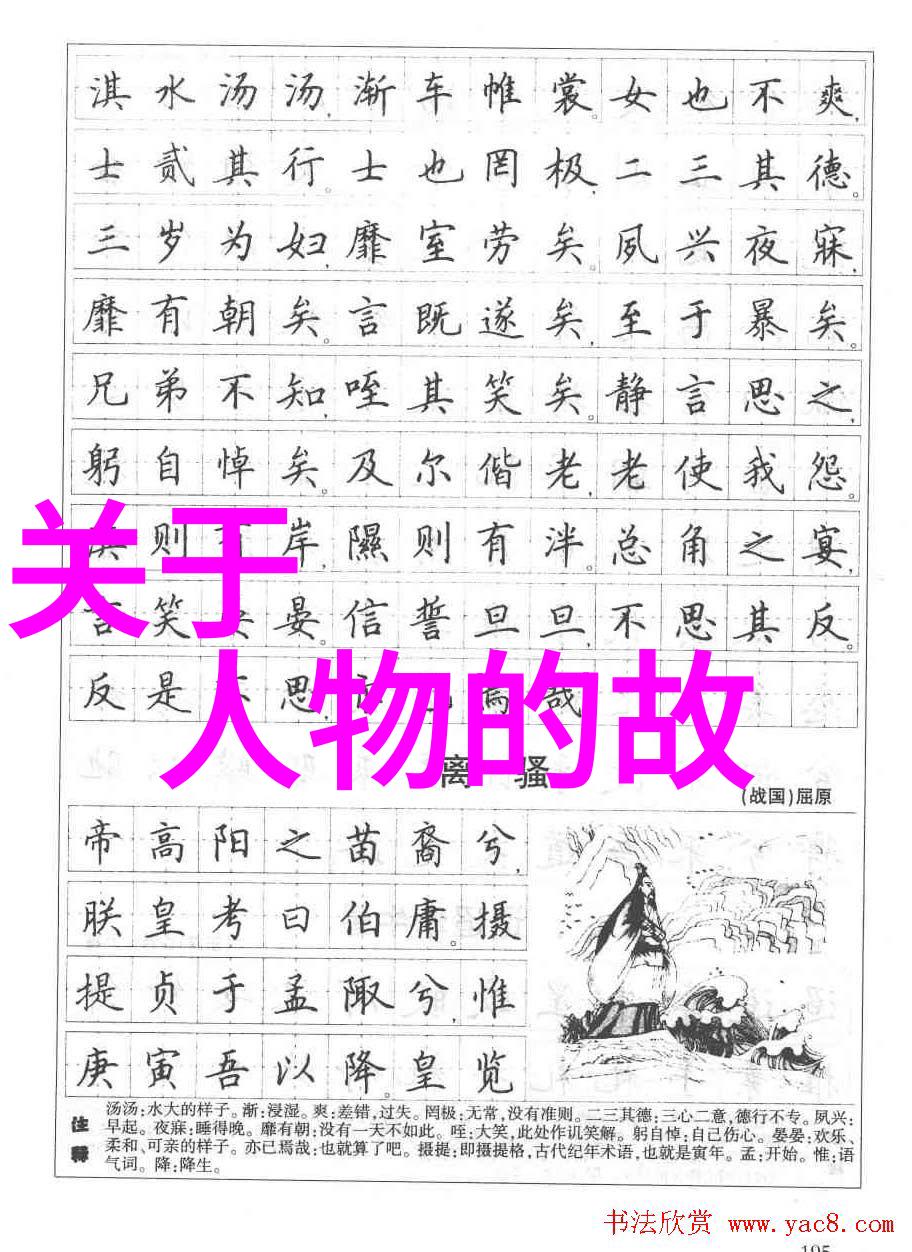 淇水汤汤,渐车帷裳。女也不爽,
士贰其行。士也罔极,二三其德。
三岁为妇,靡室劳矣。夙兴夜寐,
靡有朝矣。言既遂矣,至于暴矣。
兄弟不知,咥其笑矣。静言思之,
躬自悼矣。及尔偕老,老使我怨。
则岸,隰则有泮。总角之宴,
言笑晏。信誓旦旦,不思其反。
反是不思,焉哉
关于
人物的故
离骚
(战国)屈原
帝高阳之苗裔兮,
朕皇考曰伯庸。摄
提贞于孟陬兮,惟
庚寅吾以降。皇览
注释
汤汤:水大的样子。渐:浸湿。爽:差错,过失。罔极:无常,没有准则。二三其德:三心二意,德行不专。夙兴:
早起。夜寐:睡得晚。靡有朝:没有一天不如此。咥:大笑,此处作讥笑解。躬自悼:自己伤心。晏晏:欢乐、
柔和、可亲的样子。亦已焉哉:也就算了吧。摄提:即摄提格,古代纪年术语,也就是寅年。孟:开始。惟:语
气词。降:降生。
书法欣赏 www.yac8.com
105